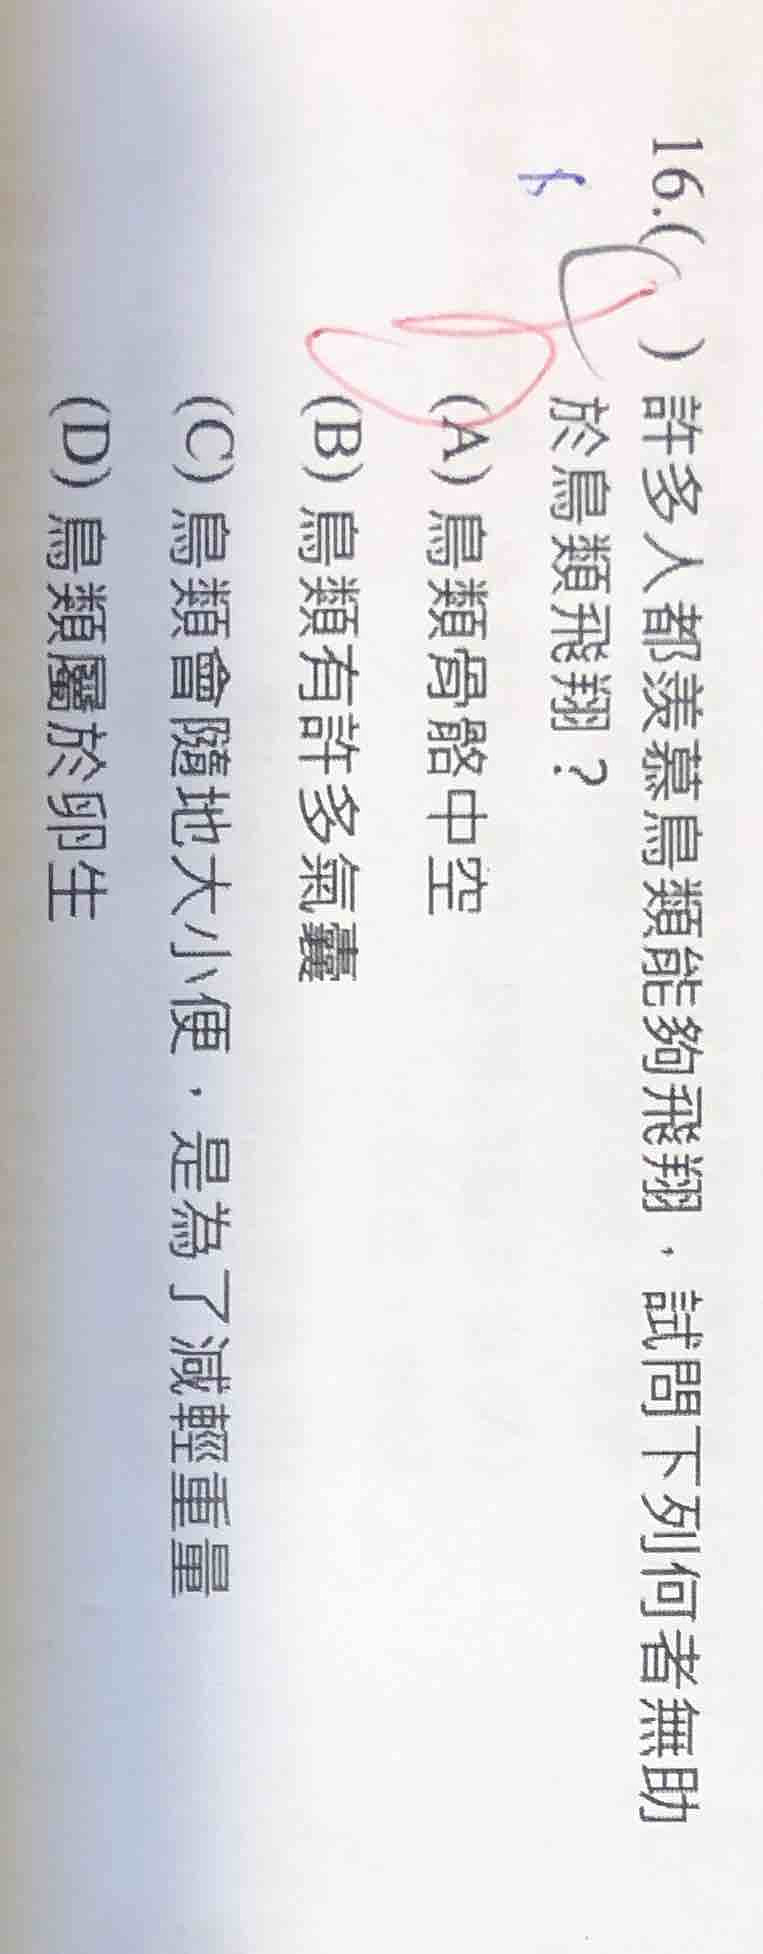 16.( ) 許多人都羨慕鳥類能夠飛翔，試問下列何者無助
於鳥類飛翔？
(A) 鳥類骨骼中空
(B) 鳥類有許多氣囊
(C) 鳥類會隨地大小便，是為了減輕重量
(D) 鳥類屬於卵生